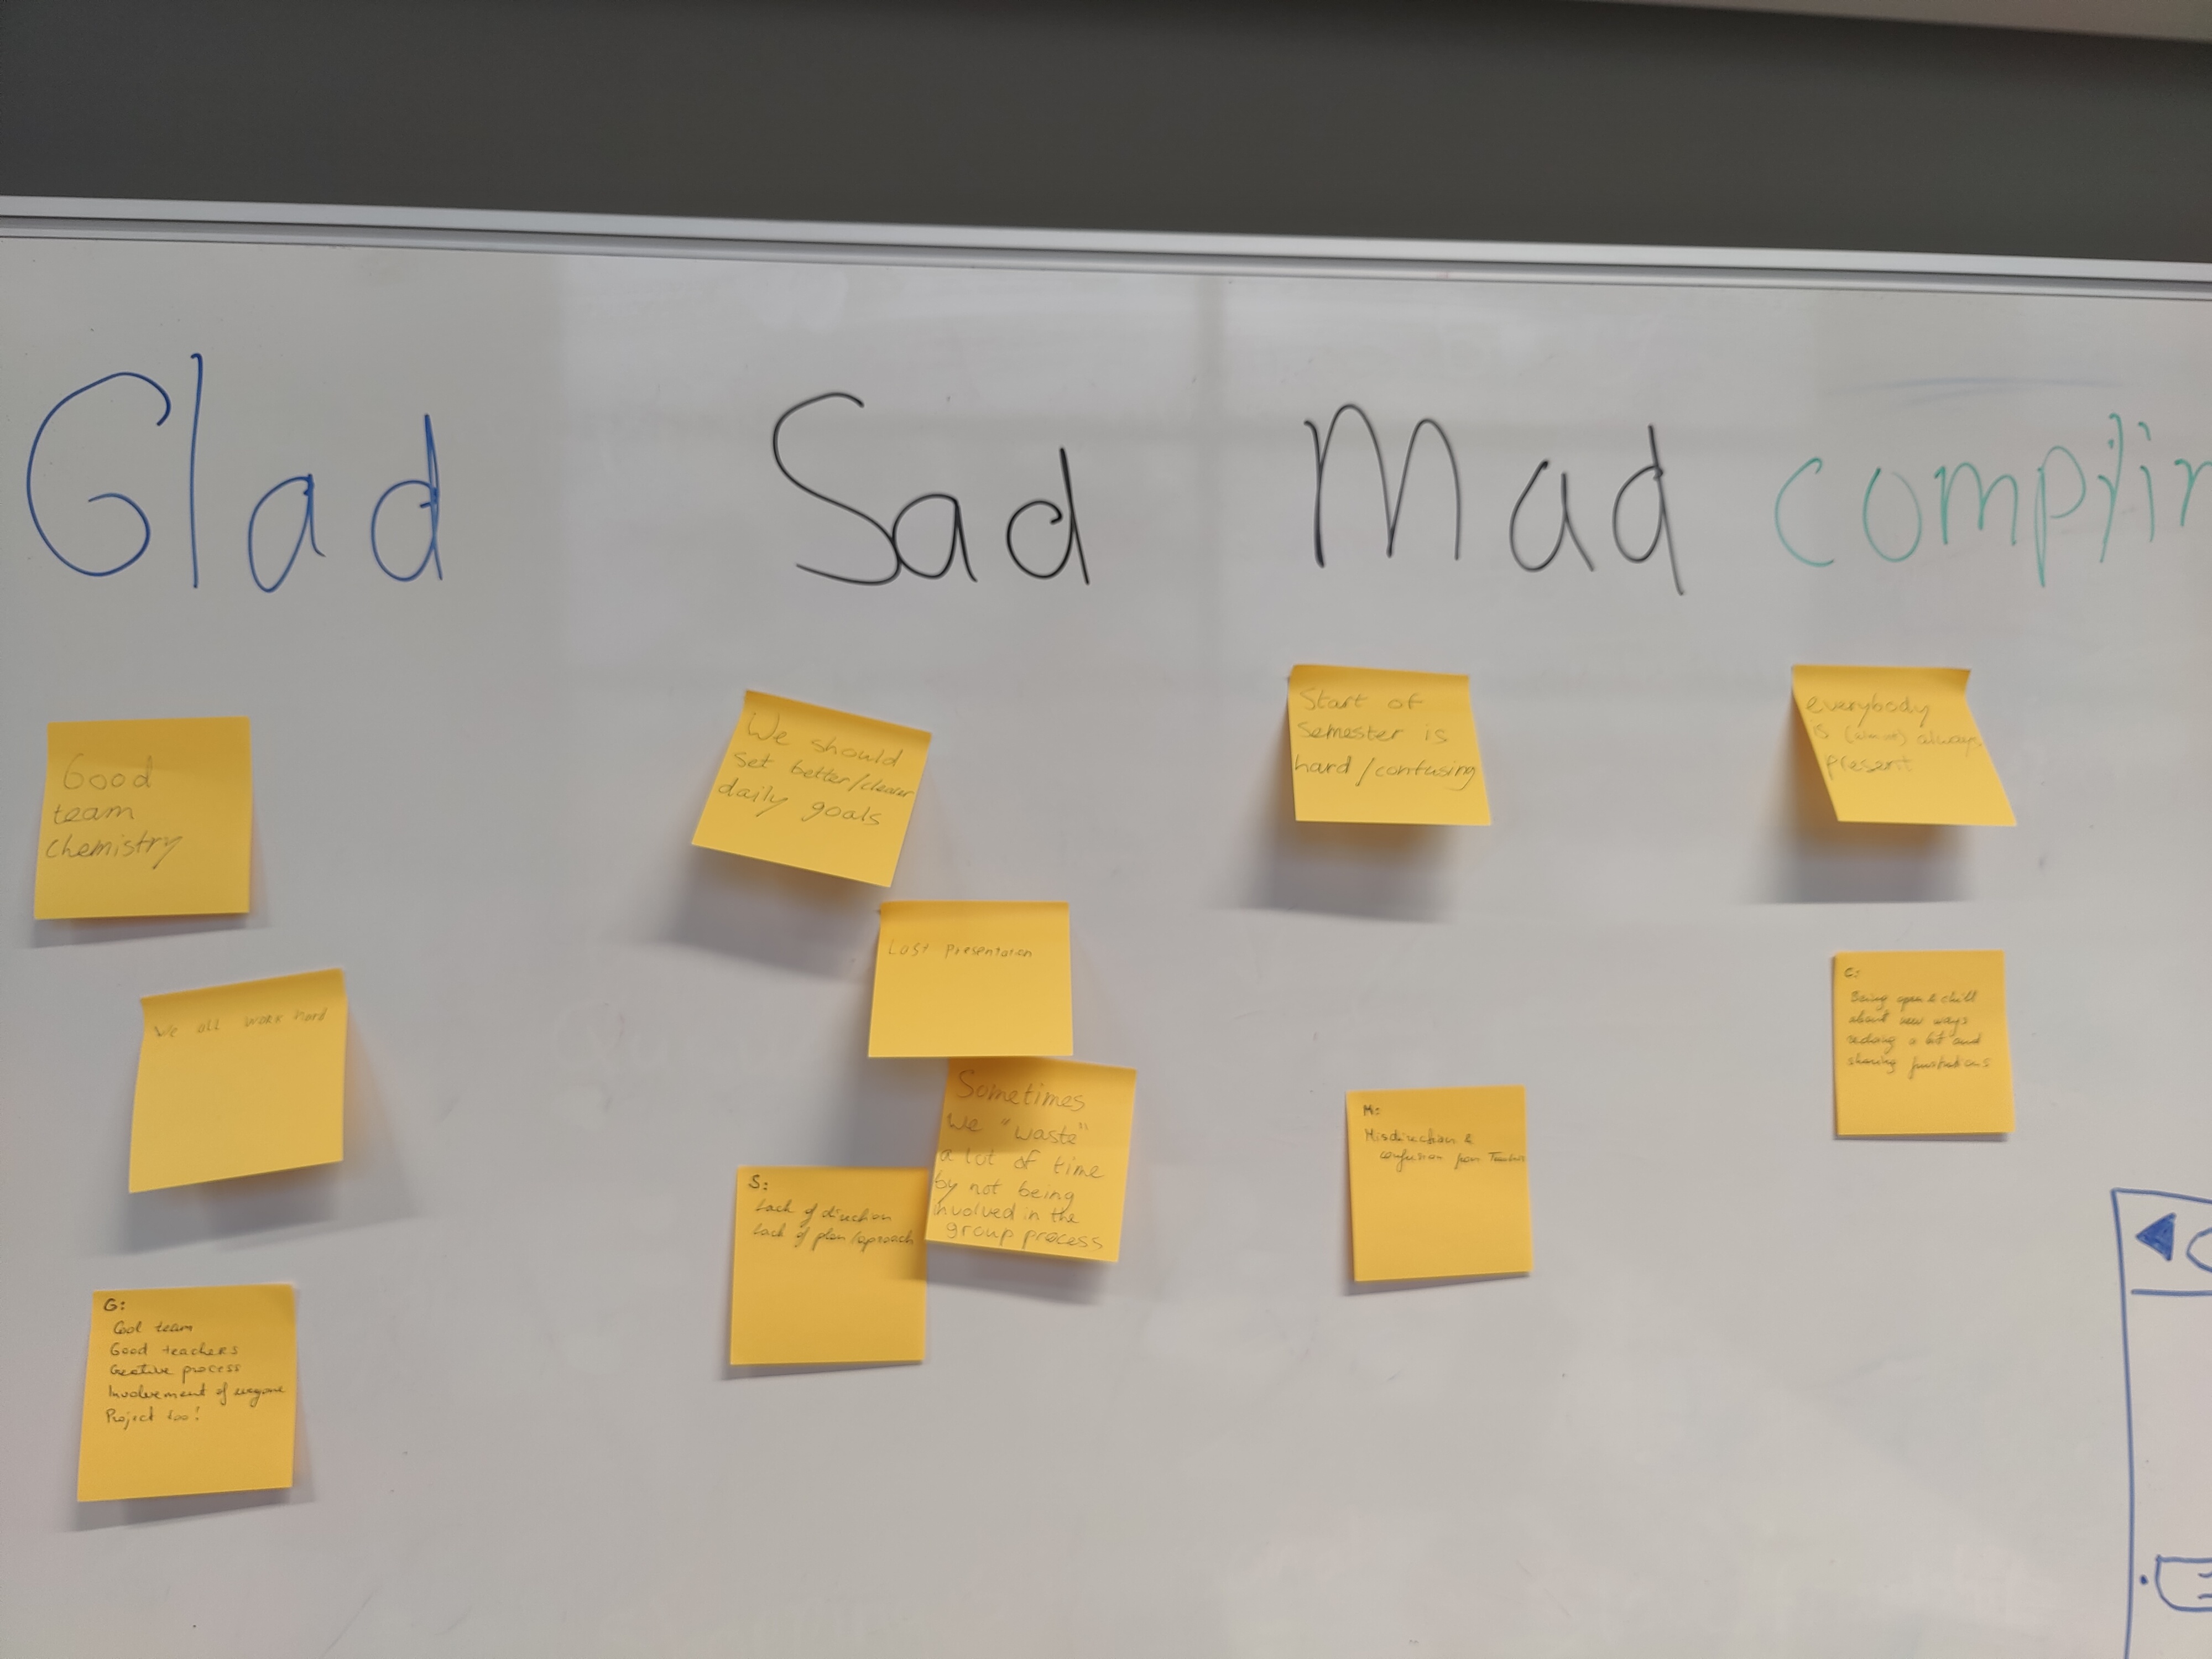 Glad
Sad
Mad
complim
Good
team
chemistry
We all work hard
G:
Cool team
Good teachers
Creative process
Involvement of everyone
Project too!
We should
set better/clearer
daily goals
Last presentation
Sometimes
we "waste"
a lot of time
by not being
involved in the
group process
S:
Lack of direction
Lack of plan/aproach
Start of
semester is
hard/confusing
M:
Misdirection &
confusion from Teachers
everybody
is (almost) always
present
C:
Being open & chill
about new ways
a bit and
sharing frustrations